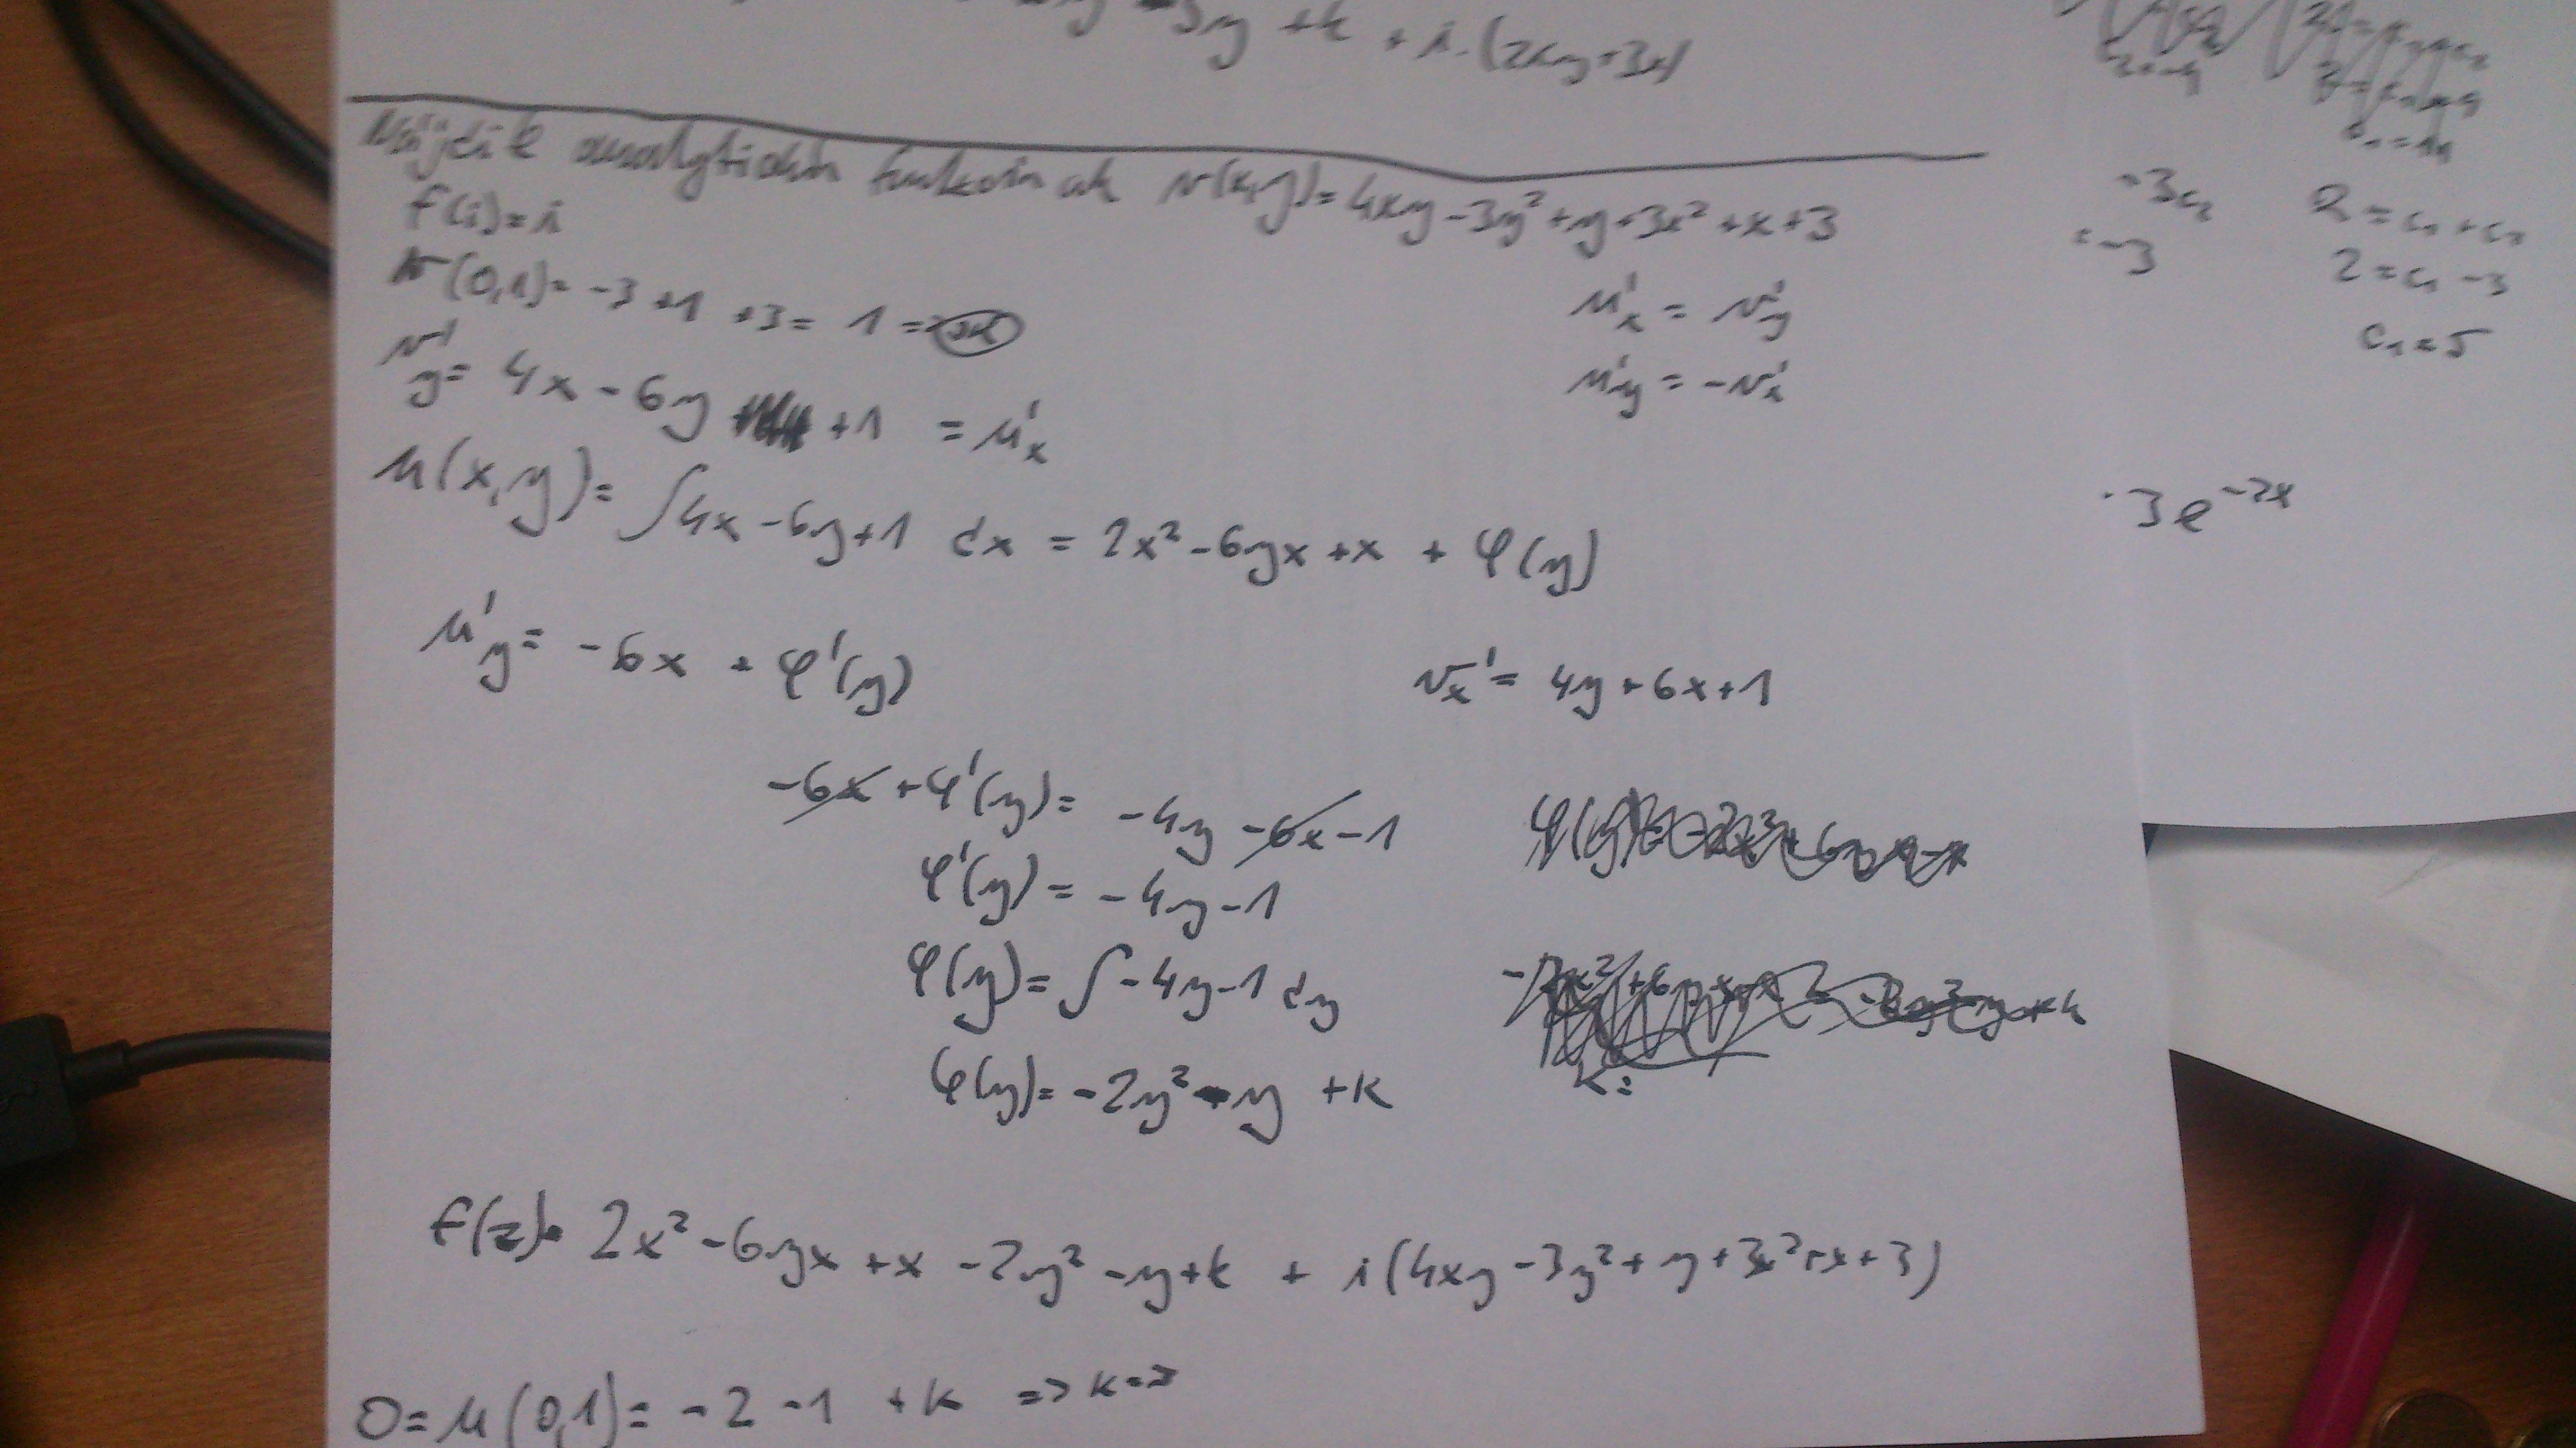 -3y +k + i·(2xy+3x)
Nájdite analytickú funkciu ak v(x,y)=4xy-3y²+y+3x²+x+3
f(i)=i
v(0,1)= -3+1 +3= 1 => ok
v'y= 4x-6y +1 = u'x
u'x = v'y
u'y = -v'x
u(x,y)= ∫4x-6y+1 dx = 2x²-6yx+x + φ(y)
u'y= -6x + φ'(y)
v'x = 4y+6x+1
-6x+φ'(y)= -4y-6x-1
φ'(y)= -4y-1
φ(y)= ∫-4y-1 dy
φ(y)= -2y²-y +k
k=
f(z)= 2x²-6yx+x-2y²-y+k + i(4xy-3y²+y+3x²+x+3)
0=u(0,1)= -2-1 +k => k=3
=3c₂
=-3
2=c₁+c₂
2=c₁-3
c₁=5
·3e⁻²ˣ